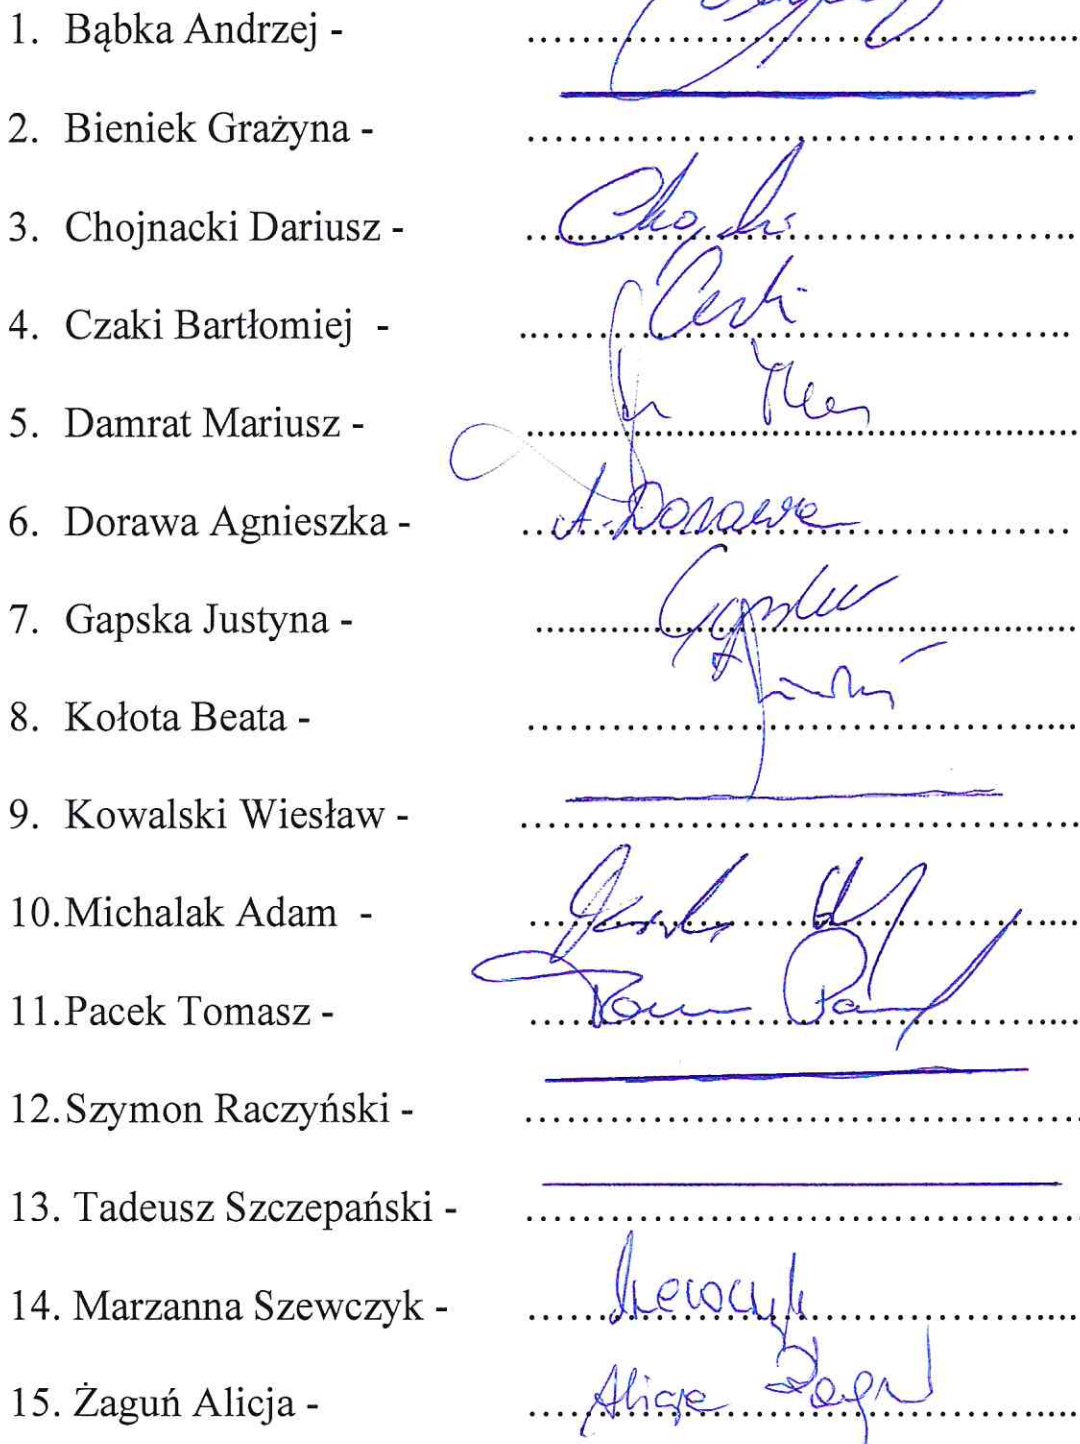 1. Bąbka Andrzej - ..........................................
2. Bieniek Grażyna - ..........................................
3. Chojnacki Dariusz - ..........................................
4. Czaki Bartłomiej - ..........................................
5. Damrat Mariusz - ..........................................
6. Dorawa Agnieszka - ..........................................
A. Dorawa
7. Gapska Justyna - ..........................................
8. Kołota Beata - ..........................................
9. Kowalski Wiesław - ..........................................
10. Michalak Adam - ..........................................
11. Pacek Tomasz - ..........................................
12. Szymon Raczyński - ..........................................
13. Tadeusz Szczepański - ..........................................
14. Marzanna Szewczyk - ..........................................
15. Żaguń Alicja - ..........................................
Alicja